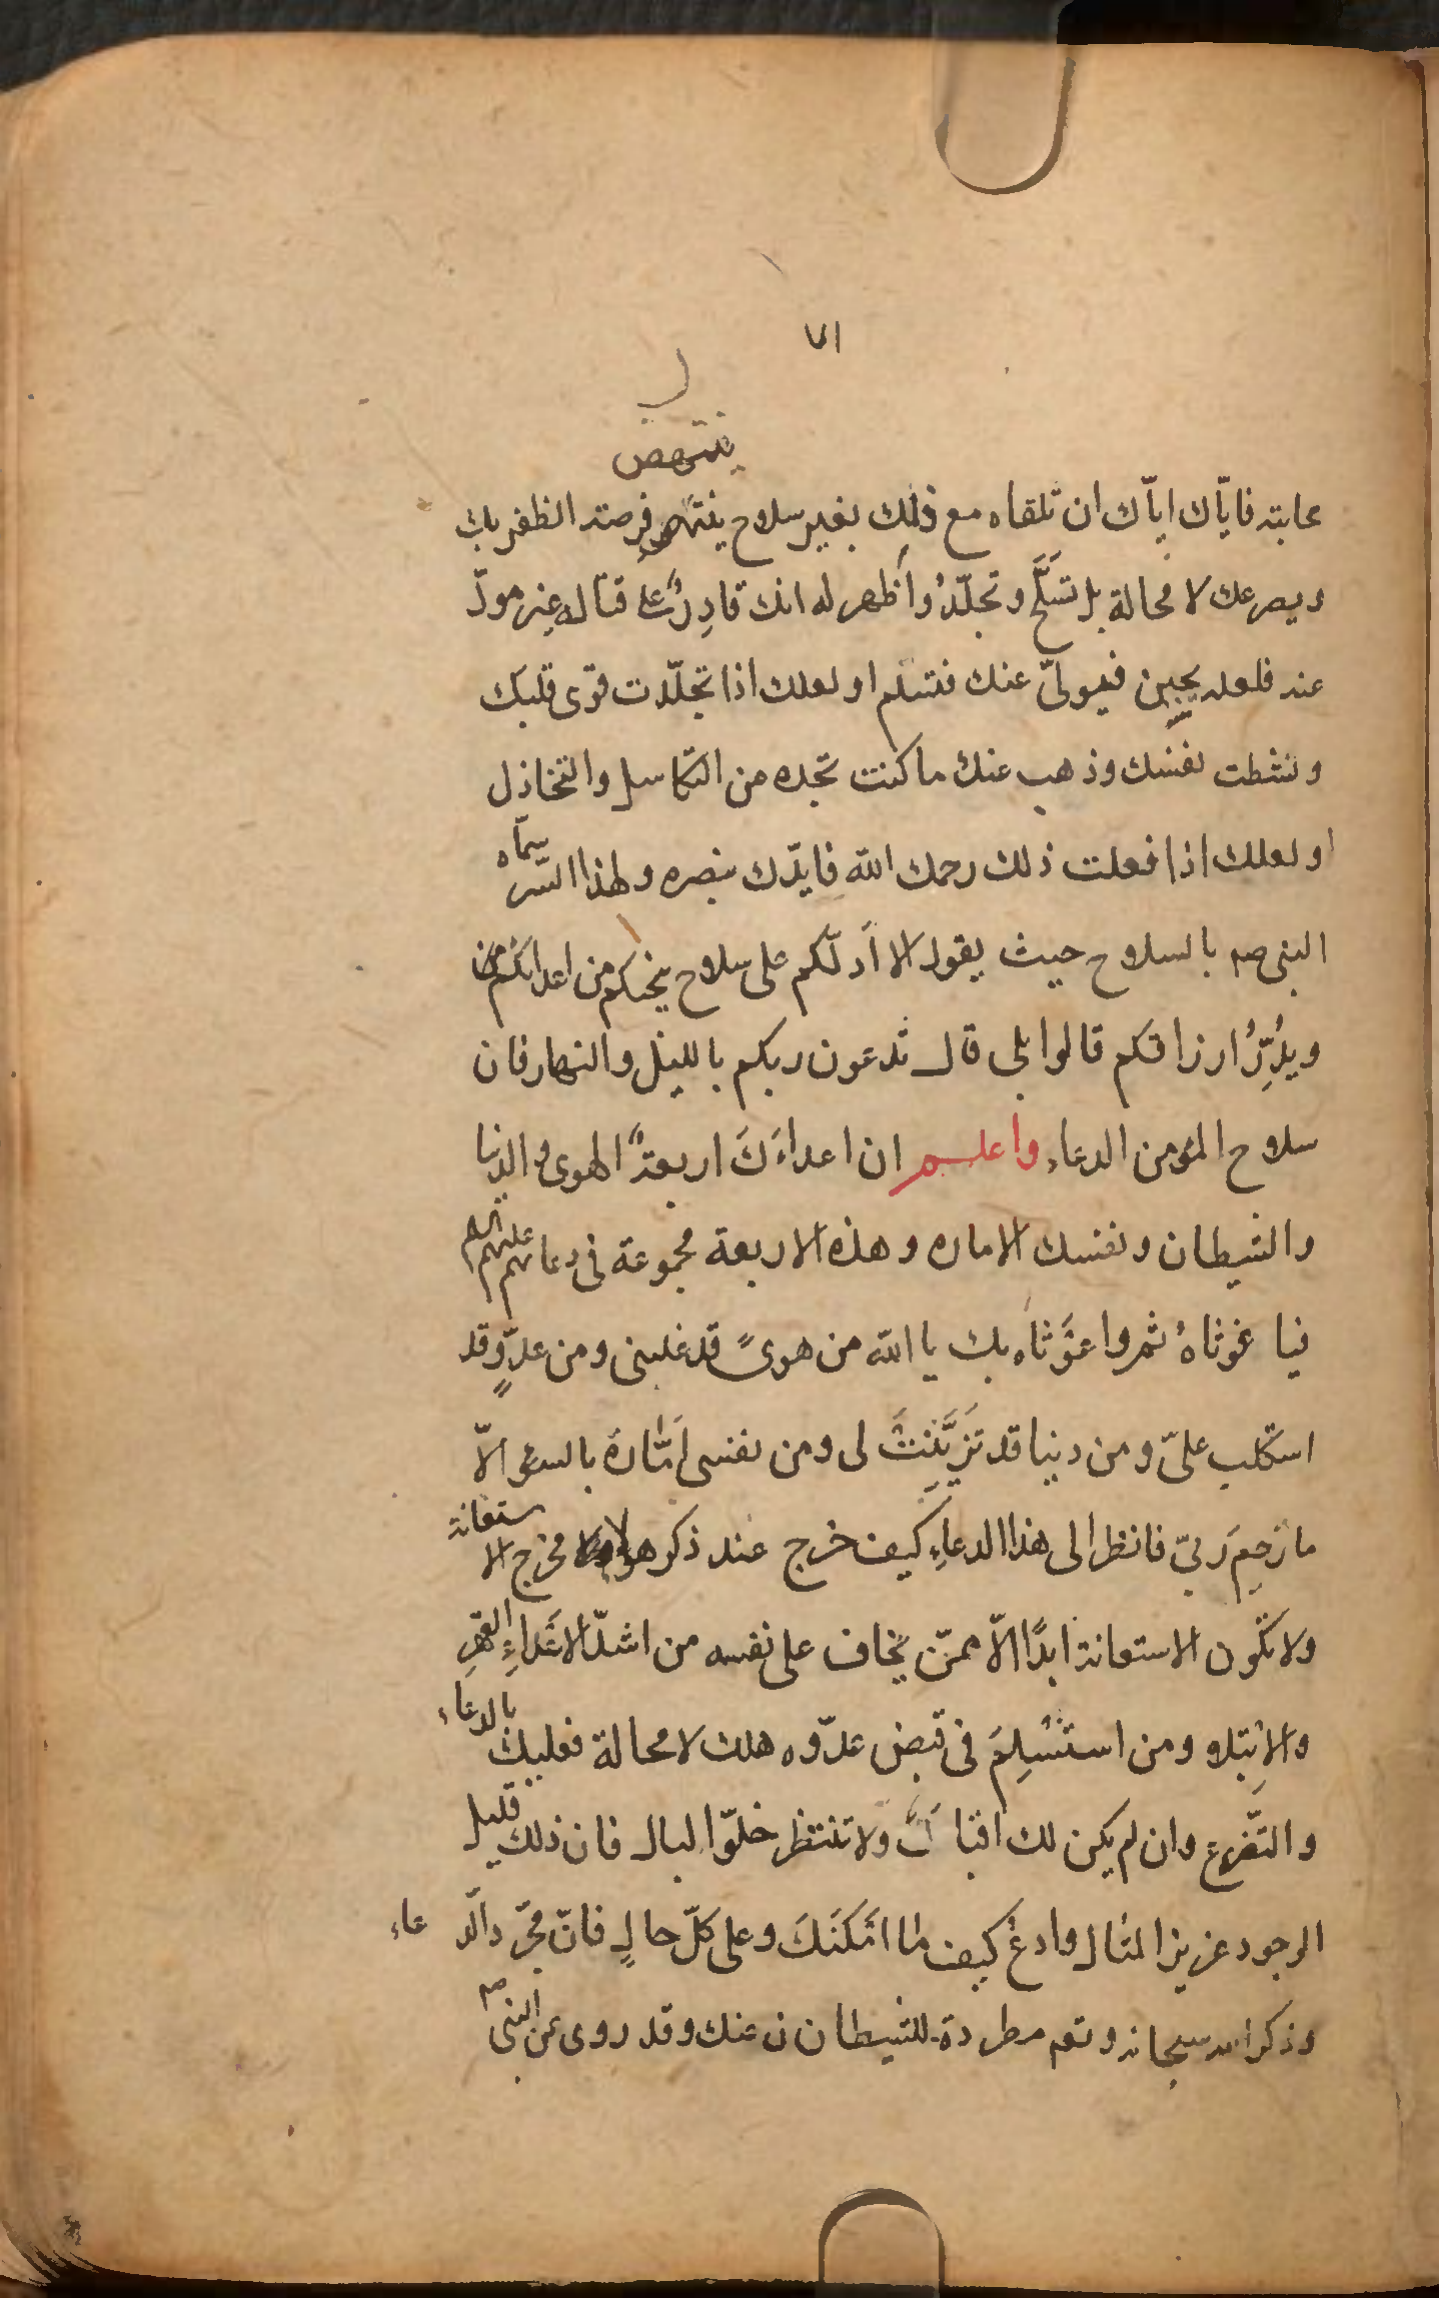 ٧١
ينتهض
محابته فاياّك اياّك ان تلقاه مع ذلك بغير سلاح ينتهض فرصته الظفر بك
ويصرعك لا محالة بل تسَلَّح وتجلّدْ وأظهر له انك قادِرٌ على قتاله غير مولّ
عنه فلعله يجبن فيولّى عنك فتسلم او لعلك اذا تجلّدت قوّى قلبك
ونشطت نفسك وذهب عنك ما كنت تجده من التكاسل والتخاذل
او لعلك اذا فعلت ذلك رحمك الله فايدّك بنصره ولهذا السّر سمّاه
النبى صم بالسلاح حيث يقول الا اَدلّكم على سلاح ينجيكم من اعدائكم
ويُدِرُّ ارزاقكم قالوا بلى قال تدعون ربكم بالليل والنهار فان
سلاح المؤمن الدعاء واعلم ان اعداءَكَ اربعةً الهوى والدنيا
والشيطان ونفسك الاماره وهذه الاربعة مجموعة فى دعائهم عليهم السلم
فيا غوثاهُ ثم وا غوَثاه بك يا الله من هوىً قد غلبنى ومن عدوٍّ قد
استكلب علىّ ومن دنيا قد تَزَيَّنَتْ لى ومن نفسى اَمّارة بالسوء الاّ
ما رَحِمَ رَبىّ فانظر الى هذا الدعاءِ كيف خرج عند ذكر هولاء مخرج الاستغاثة
ولا تكون الاستغاثة ابدًا الاّ ممّن يخاف على نفسه من اشدّ الاعَداءِ القهرِ
والاِبْتلاو ومن استسْلِمَ فى قبض عدّوه هلك لا محالة فعليك بالدعاء
والتّضرع وان لم يكن لك اقبال ولا تنتظر خلوّ البال فان ذلك قليل
الوجود عزيز المثال وادعُ كيف ما امَكَنَكَ وعلى كلّ حالٍ فانّ مجرّد الدّعاء
وذكر الله سبحانه وتعم مطردة للشيطان عنك وقد روى عن النبى صم